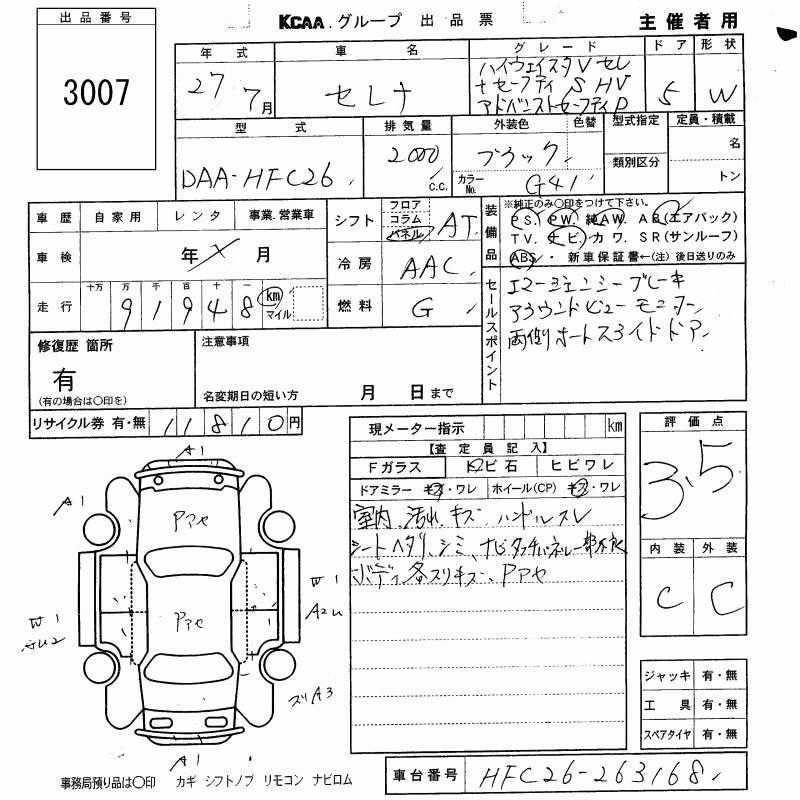 出品番号
3007
KCAA.グループ 出品票 主催者用
年式 車名 グレード ドア 形状
27 7月 セレナ ハイウェイスタV セレ
+セーフティ S HV
アドバンストセーフティP 5 W
型式 排気量 外装色 色替 型式指定 定員・積載
DAA-HFC26 2000 c.c. ブラック 名
カラーNo. G41 類別区分 トン
車歴 自家用 レンタ 事業.営業車
車検 年 月
走行 十万 万 千 百 十 一
9 1 9 4 8 km マイル
シフト フロア コラム パネル AT
冷房 AAC
燃料 G
装備品 ※純正のみ○印をつけて下さい。
PS. PW. 純AW. AB(エアバック)
TV. ナビ. カワ. SR(サンルーフ)
ABS ・ 新車保証書←(注)後日送りのみ
セールスポイント
エマージェンシーブレーキ
アラウンドビューモニター
両側オートスライドドア
修復歴 箇所
有
(有の場合は○印を)
注意事項
名変期日の短い方 月 日まで
リサイクル券 有・無 11810円
現メーター指示 km
【査定員記入】
Fガラス トビ石 ヒビワレ
ドアミラー キズ・ワレ ホイール(CP) キズ・ワレ
室内 汚れ キズ ハンドルスレ
シートヘタリ、シミ、ナビタッチパネル一部不良
ボディ各スリキズ、Pアセ
評価点
3.5
内装 外装
C C
A1
A1
A1
Pアセ
Pアセ
W1
A2U
W1
ズリA3
A1
ジャッキ 有・無
工具 有・無
スペアタイヤ 有・無
事務局預り品は○印 カギ シフトノブ リモコン ナビロム
車台番号 HFC26-263168